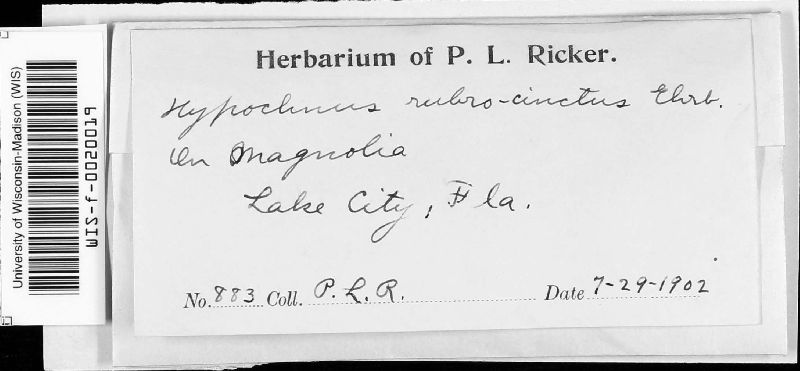 Herbarium of P. L. Ricker.
Hypochnus rubro-cinctus Ehrb.
On Magnolia
Lake City, Fla.
No. 883 Coll. P. L. R. Date 7-29-1902
University of Wisconsin-Madison (WIS)
WIS-f-0020019